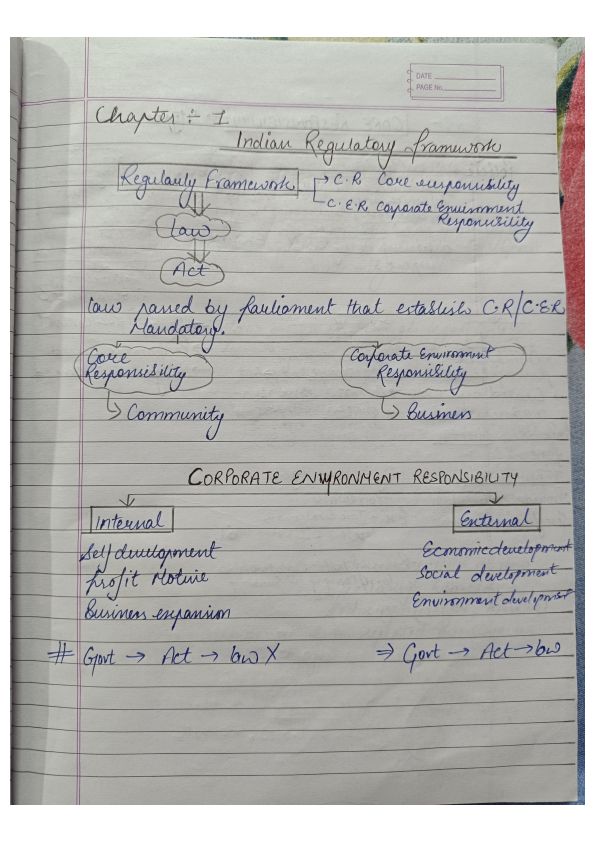 DATE
PAGE No.
Chapter ÷ 1
Indian Regulatory framework
Regularly Framework → C.R Core responsibility
C.E.R Corporate Environment Responsibility
Law
Act
Law passed by Parliament that establish C.R/C.ER
Mandatory.
Core Responsibility
Corporate Environment Responsibility
Community
Business
CORPORATE ENVIRONMENT RESPONSIBILITY
Internal
External
Self development
Economic development
Profit Motive
Social development
Business expansion
Environment development
# Govt → Act → law X
⇒ Govt → Act → law